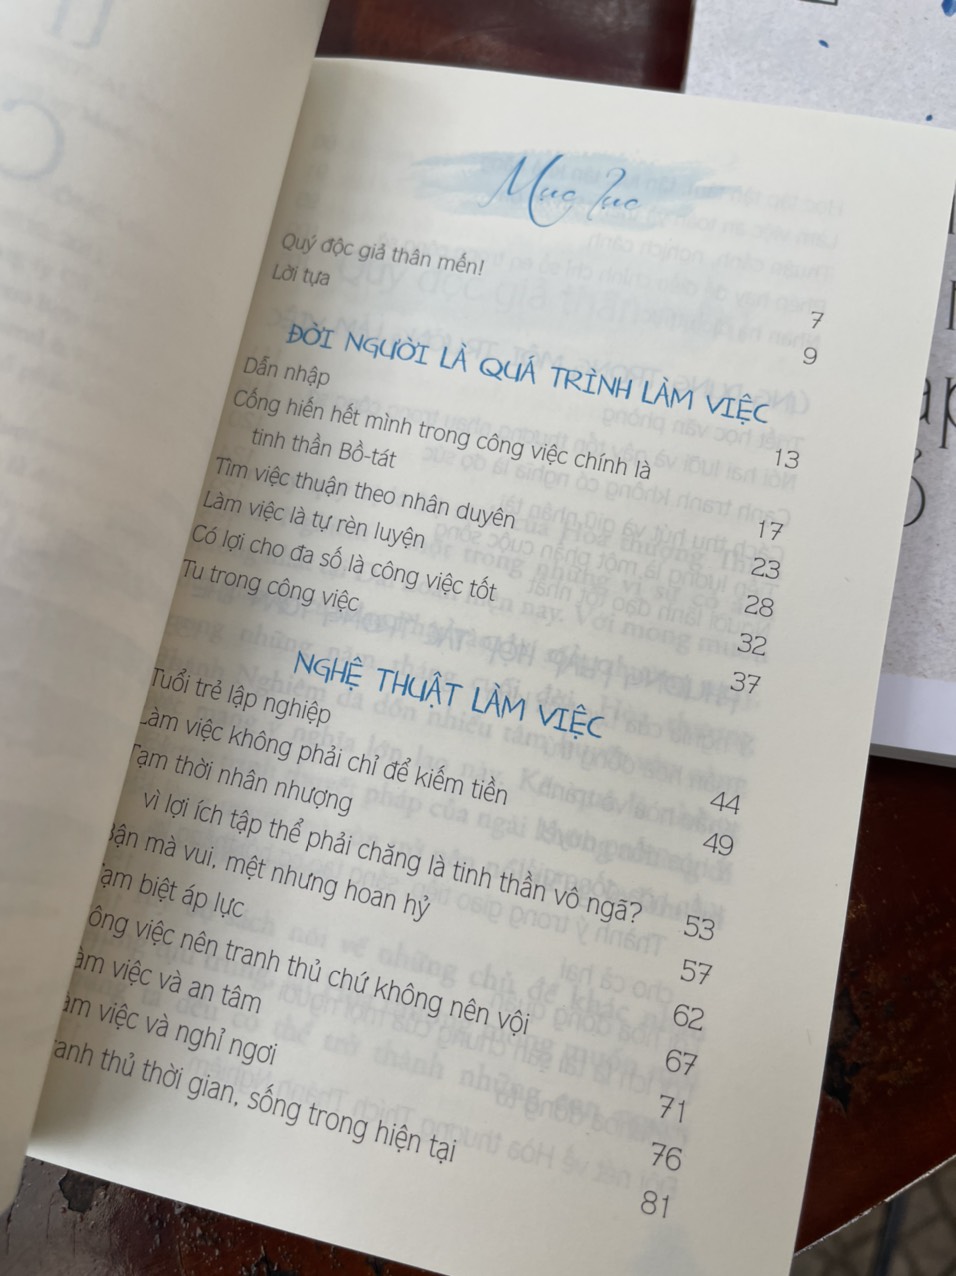 Mục lục
Quý độc giả thân mến! 7
Lời tựa 9
ĐỜI NGƯỜI LÀ QUÁ TRÌNH LÀM VIỆC
Dẫn nhập 13
Cống hiến hết mình trong công việc chính là
tinh thần Bồ-tát 17
Tìm việc thuận theo nhân duyên 23
Làm việc là tự rèn luyện 28
Có lợi cho đa số là công việc tốt 32
Tu trong công việc 37
NGHỆ THUẬT LÀM VIỆC
Tuổi trẻ lập nghiệp 44
Làm việc không phải chỉ để kiếm tiền 49
Tạm thời nhân nhượng
vì lợi ích tập thể phải chăng là tinh thần vô ngã? 53
Bận mà vui, mệt nhưng hoan hỷ 57
Tạm biệt áp lực 62
ông việc nên tranh thủ chứ không nên vội 67
àm việc và an tâm 71
àm việc và nghỉ ngơi 76
ranh thủ thời gian, sống trong hiện tại 81